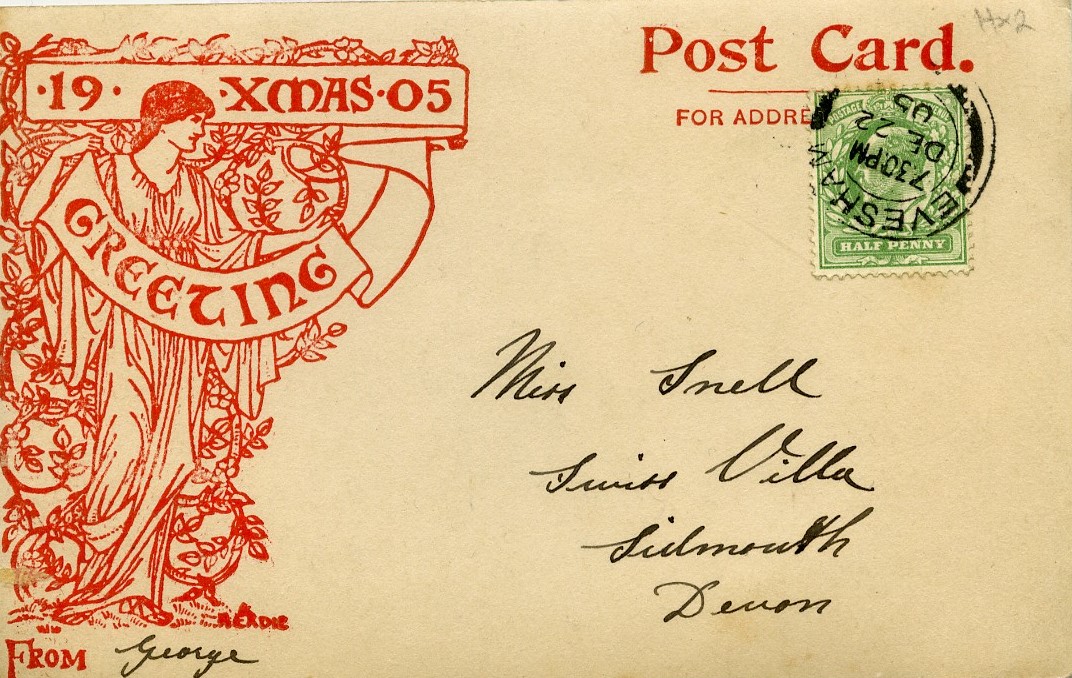 ·19· XMAS·05
GREETING
Post Card.
FOR ADDRE
H×2
EVESHAM
7.30PM
DE 22
05
HALF PENNY
Miss Snell
Swiss Villa
Sidmouth
Devon
FROM George